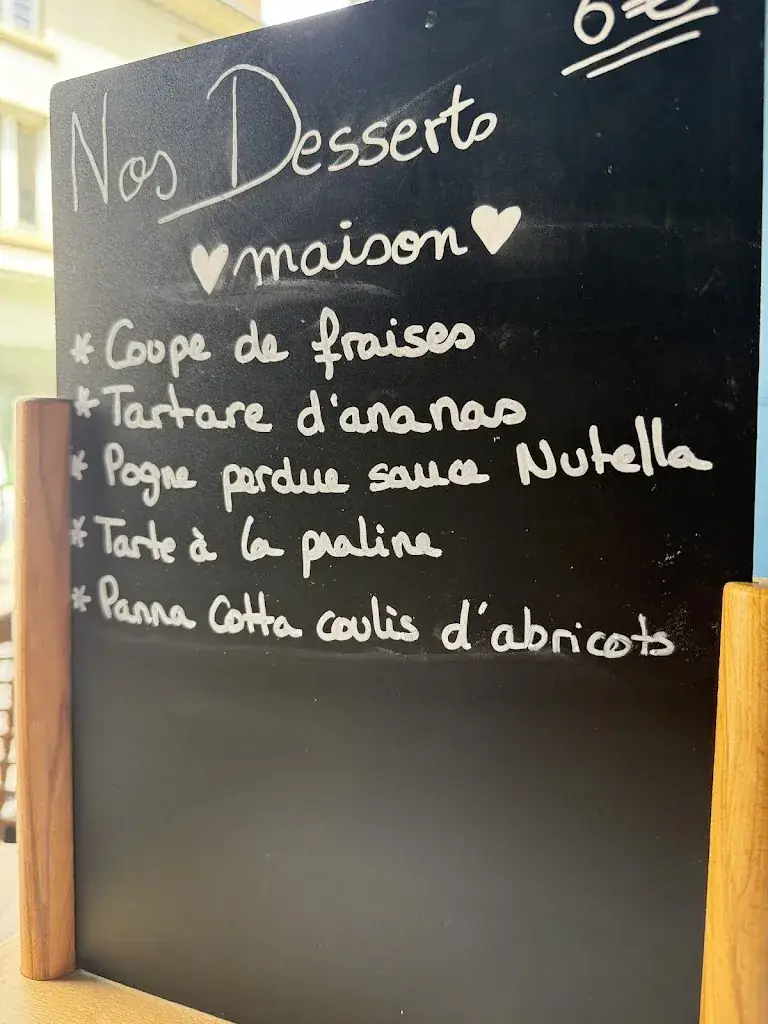 6€
Nos Desserts
♥maison♥
* Coupe de fraises
* Tartare d'ananas
* Pogne perdue sauce Nutella
* Tarte à la praline
* Panna Cotta coulis d'abricots